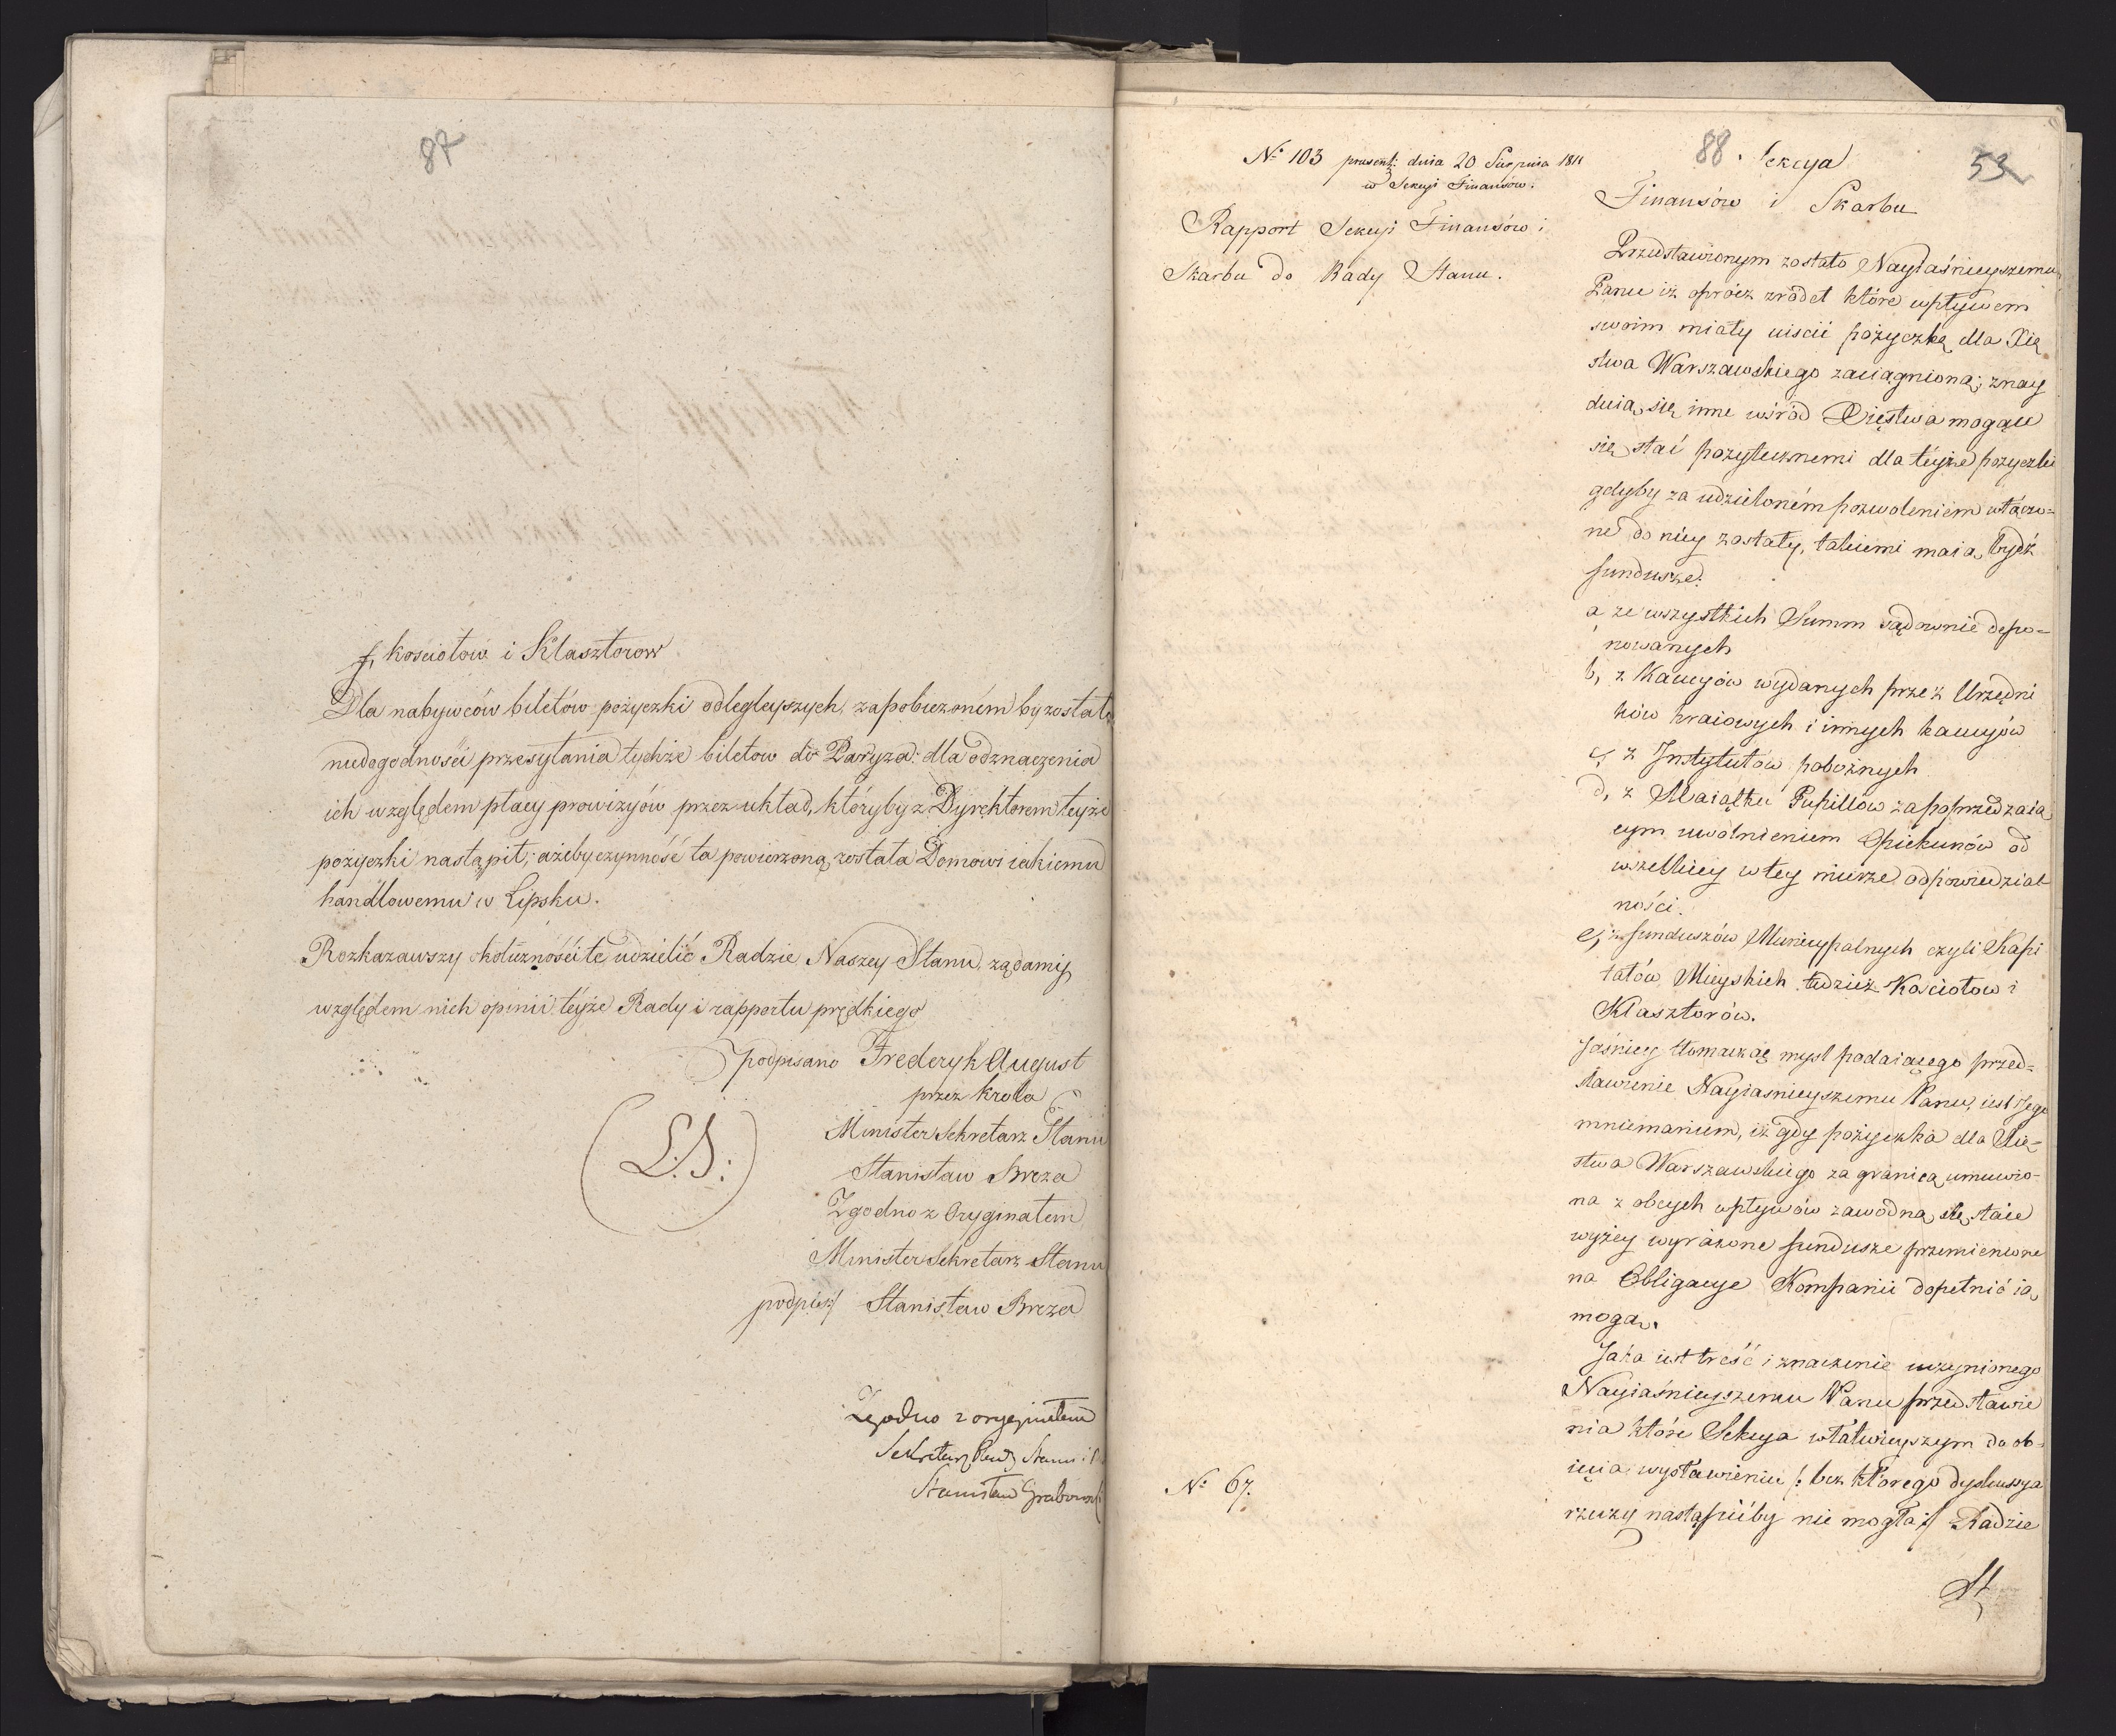 87
f, kosciołow i Klasztorow
Dla nabywców biletów pożyczki odległeyszych, zapobieżoném by zostało
niedogodności przesyłania tychże biletow do Paryża: dla odznaczenia
ich względem płacy prowizyów przez układ, któryby z Dyrektorem teyże
pożyczki nastąpił; ażeby czynność ta powierzoną została Domowi iakiemu
handlowemu w Lipsku.
Rozkazawszy okoliczności te udzielić Radzie Naszey Stanu, żądamy
względem nich opinii teyże Rady i rapportu prędkiego
podpisano Frederyk August
przez Krola
Minister Sekretarz Stanu
(L.S:)
Stanisław Breza
Zgodno z Oryginałem
Minister Sekretarz Stanu
podpis:/ Stanisław Breza
Zgodno z oryginałem
Sekretarz Rady Stanu
Stanisław Grabowski
No 103 praesent: dnia 20 Sierpnia 1811
w Sekcyi Finansów.
Rapport Sekcyi Finansów i
Skarbu do Rady Stanu.
No 67.
88. Sekcya
53
Finansów i Skarbu
Przedstawionym zostało Nayiaśnieyszemu
Panu iż oprócz zródeł które wpływem
swoim miały uiścić pożyczkę dla Xię
stwa Warszawskiego zaciągnioną; znay
duią się inne wśród Xięstwa mogące
się stać pożytecznemi dla téyże pożyczki
gdyby za udzieloném pozwoleniem włączo=
ne do niey zostały, takiemi maią bydź
fundusze:
a, ze wszystkich Summ sądownie depo=
nowanych
b, z Kaucyów wydanych przez Urzędni
ków kraiowych i innych kaucyów
c, z Instytutów pobożnych
d, z Maiątku Pupillow za poprzedzaią
cym uwolnieniem Opiekunów od
wszelkiey w tey mierze odpowiedzial
ności.
e, z funduszów Municypalnych czyli Kapi
tałów Mieyskich tudzież Kościołow i
Klasztorów.
Jaśniey tłomacząc myśl podaiącego przed=
stawienie Nayiasnieyszemu Panu, iest Jego
mniemaniem, iż gdy pożyczka dla Xię=
stwa Warszawskiego za granicą umówio=
na z obcych wpływów zawodną się staie
wyżey wyrażone fundusze przemienione
na Obligacye Kompanii dopełnić ią
mogą.
Jaka iest treść i znaczenie uczynionego
Nayiaśnieyszemu Panu przedstawie
nia które Sekcya w łatwieyszym do ob=
ięcia wystawieniu /: bez którego dyskussya
rzeczy nastąpićby nie mogła :/ Radzie
St